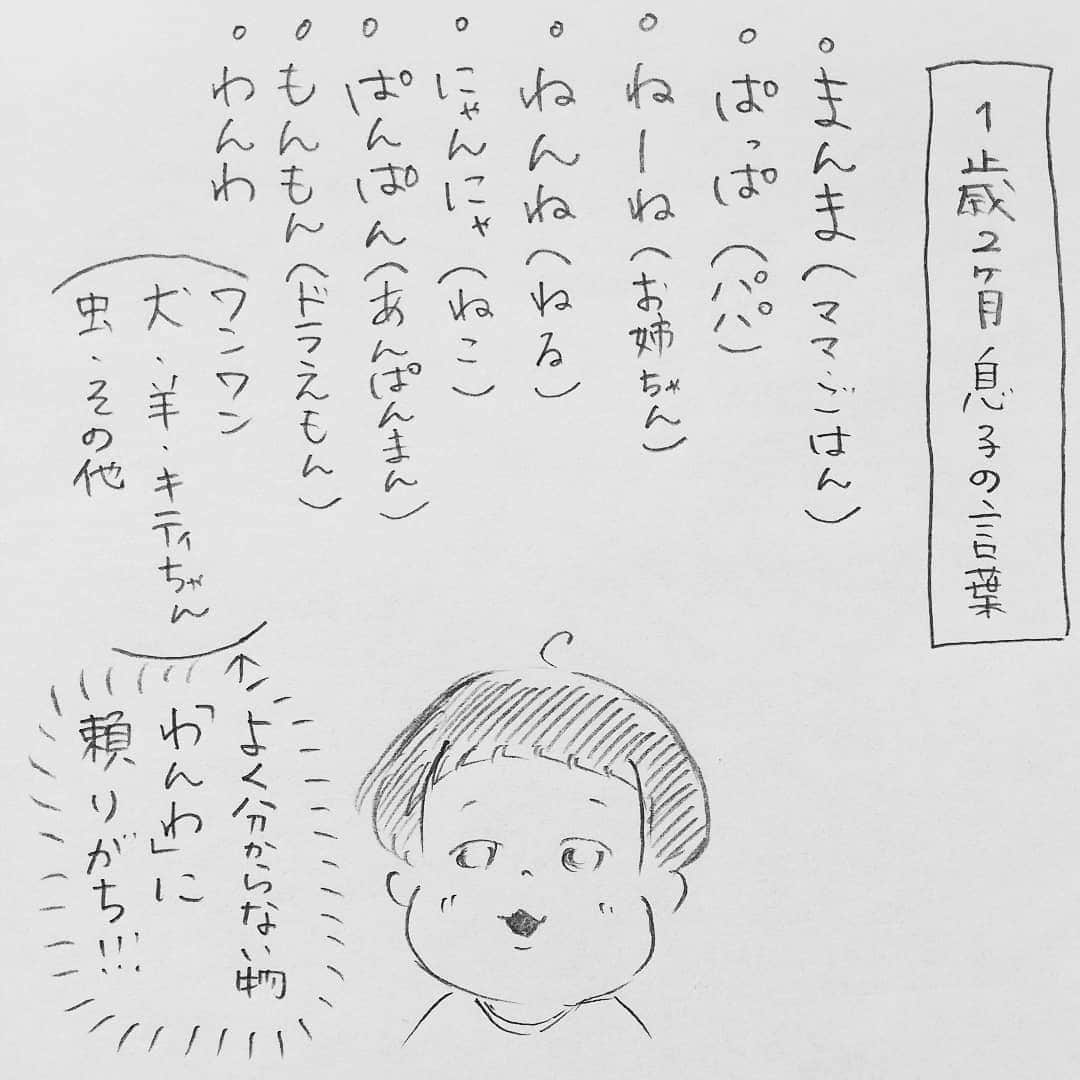 1歳2ヶ月息子の言葉
。まんま(ママ・ごはん)
。ぱっぱ(パパ)
。ねーね(お姉ちゃん)
。ねんね(ねる)
。にゃんにゃ(ねこ)
。ぱんぱん(あんぱんまん)
。もんもん(ドラえもん)
。わんわ
(ワンワン
犬・羊・キティちゃん
虫・その他)
↑よく分からない物
「わんわ」に
頼りがち!!!